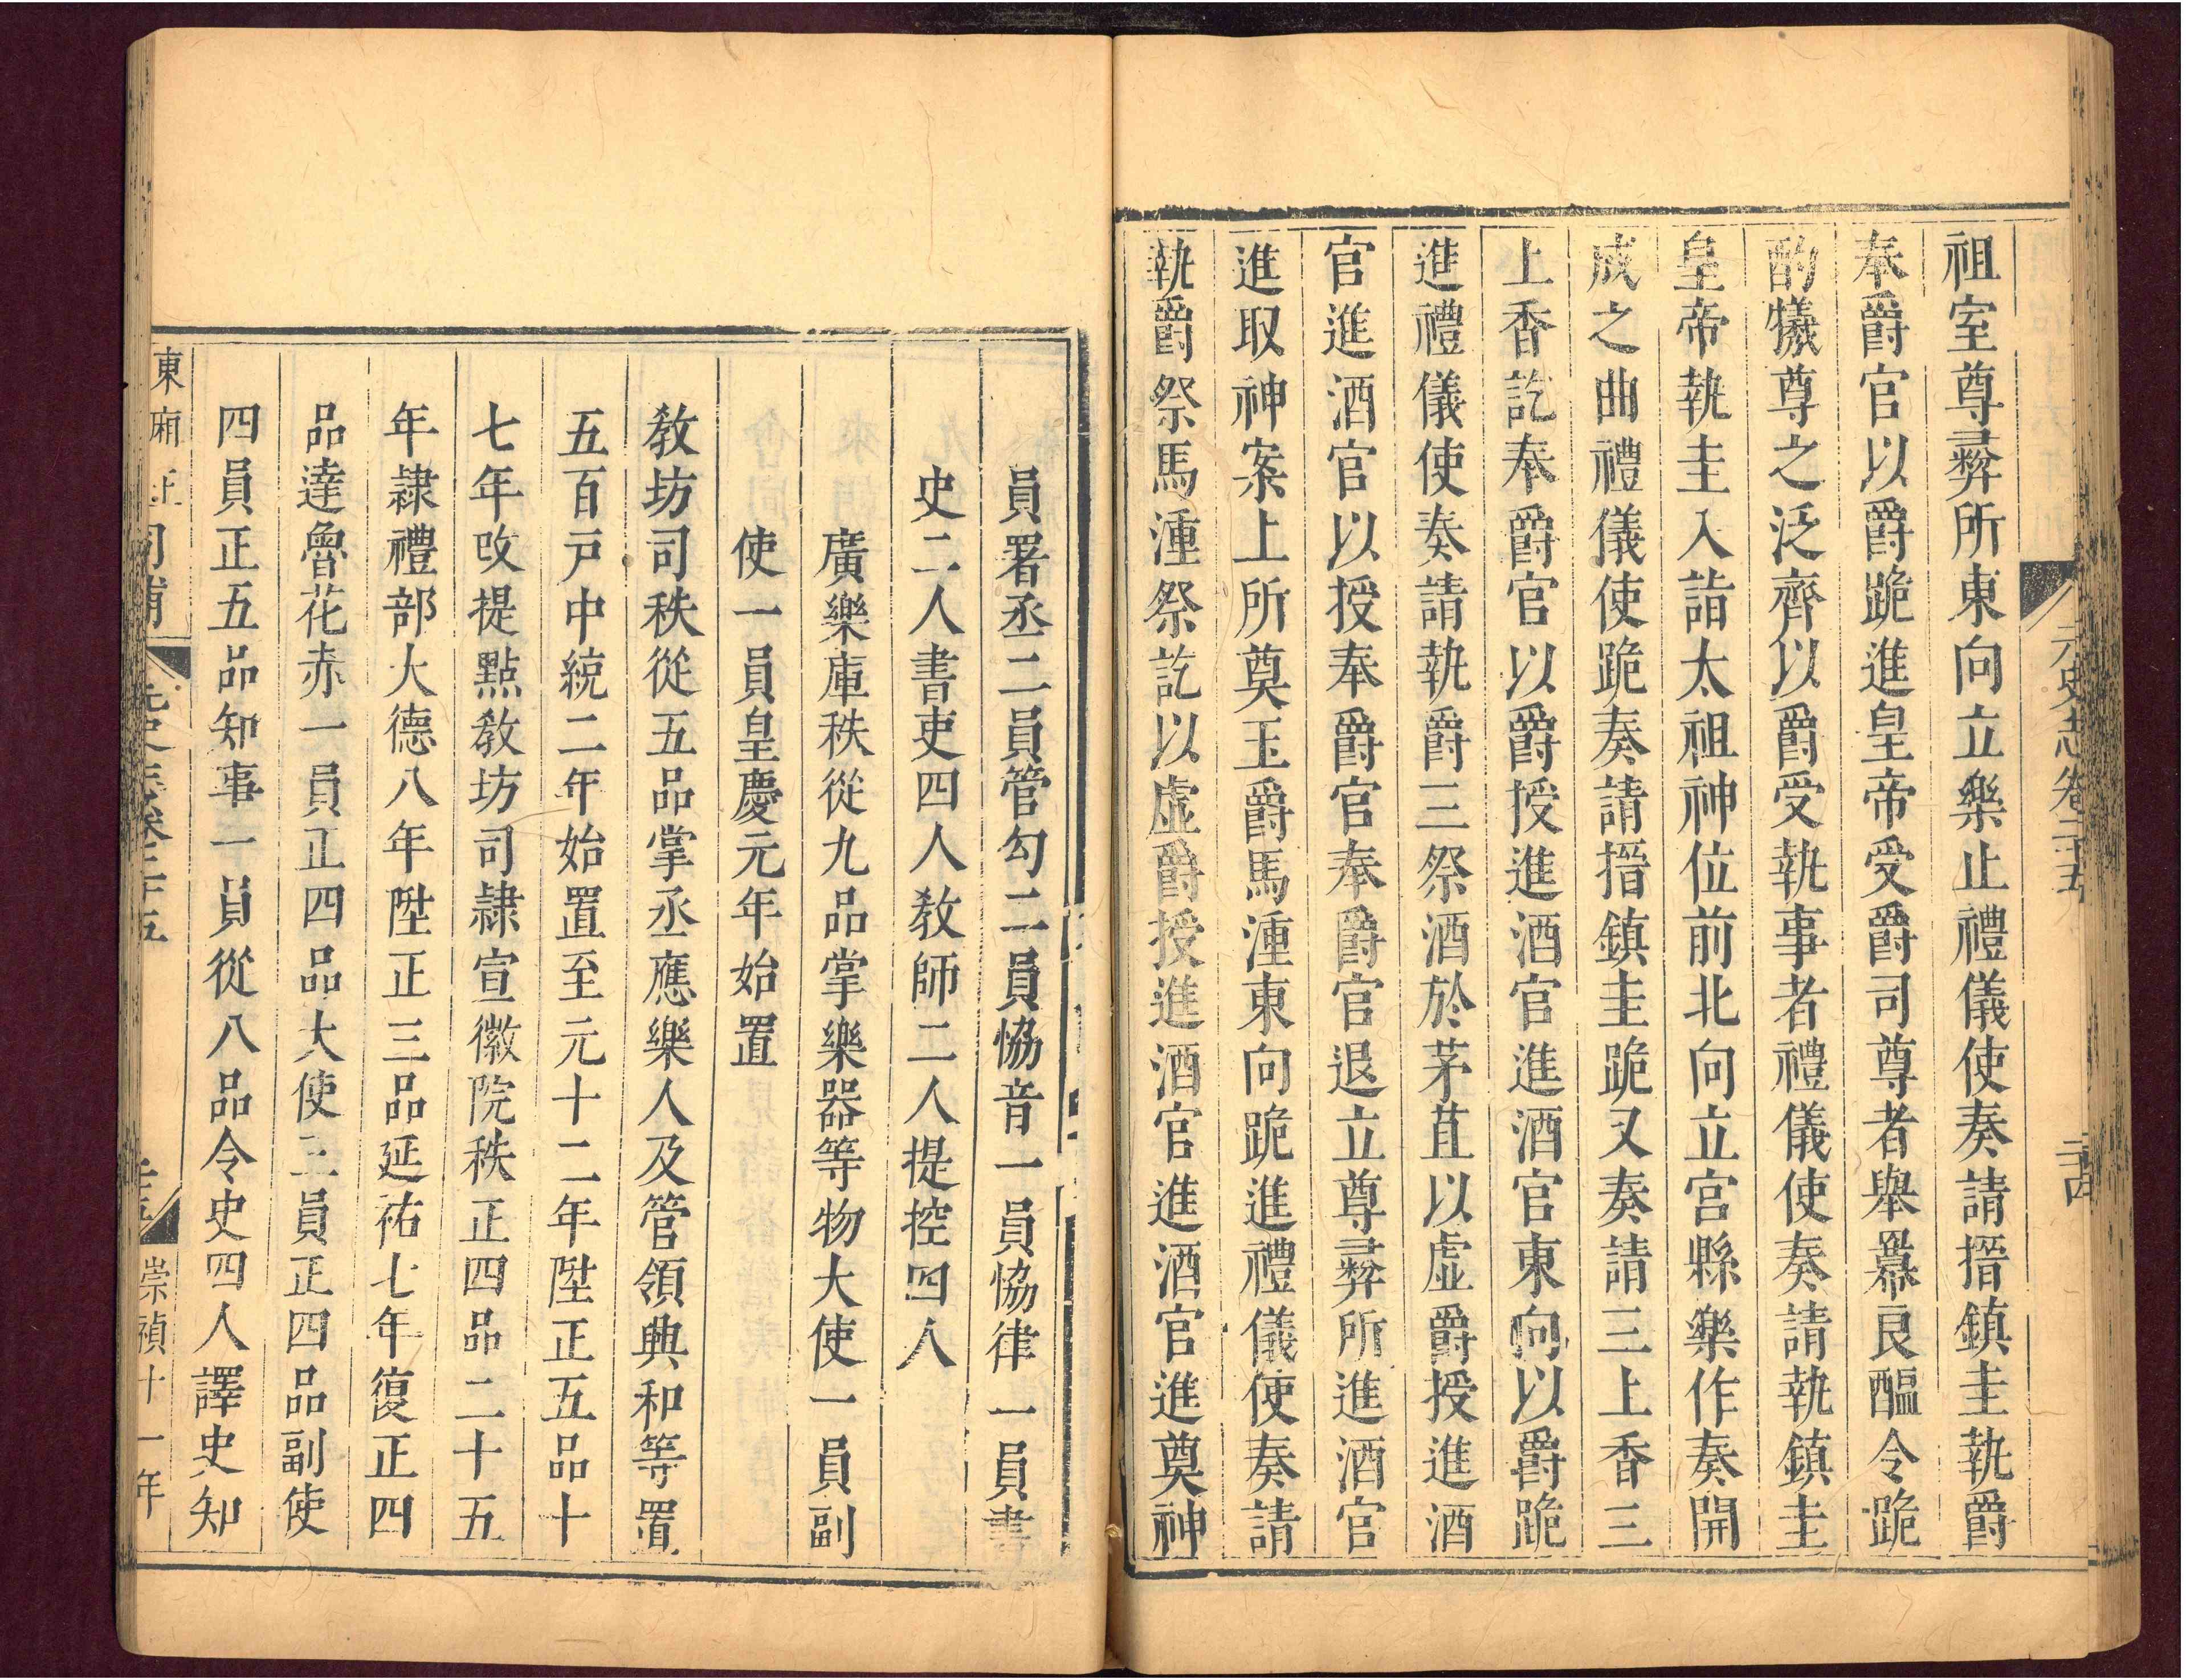 元史志卷二十五
二十四
祖室尊彞所東向立樂止禮儀使奏請搢鎮圭執爵
奉爵官以爵跪進皇帝受爵司尊者舉羃良醞令跪
酌犧尊之泛齊以爵受執事者禮儀使奏請執鎮圭
皇帝執圭入詣太祖神位前北向立宫縣樂作奏開
成之曲禮儀使跪奏請搢鎮圭跪又奏請三上香三
上香訖奉爵官以爵授進酒官進酒官東向以爵跪
進禮儀使奏請執爵三祭酒於茅苴以虛爵授進酒
官進酒官以授奉爵官奉爵官退立尊彞所進酒官
進取神案上所奠玉爵馬湩東向跪進禮儀使奏請
執爵祭馬湩祭訖以虛爵授進酒官進酒官進奠神
員署丞二員管勾二員恊音一員恊律一員書
史二人書吏四人教師二人提控四人
廣樂庫秩從九品掌樂器等物大使一員副
使一員皇慶元年始置
教坊司秩從五品掌丞應樂人及管領興和等署
五百户中統二年始置至元十二年陞正五品十
七年攺提點教坊司隷宣徽院秩正四品二十五
年隷禮部大德八年陞正三品延祐七年復正四
品達魯花赤一員正四品大使三員正四品副使
四員正五品知事一員從八品令史四人譯史知
東廂
元史志卷三十五
崇禎十一年